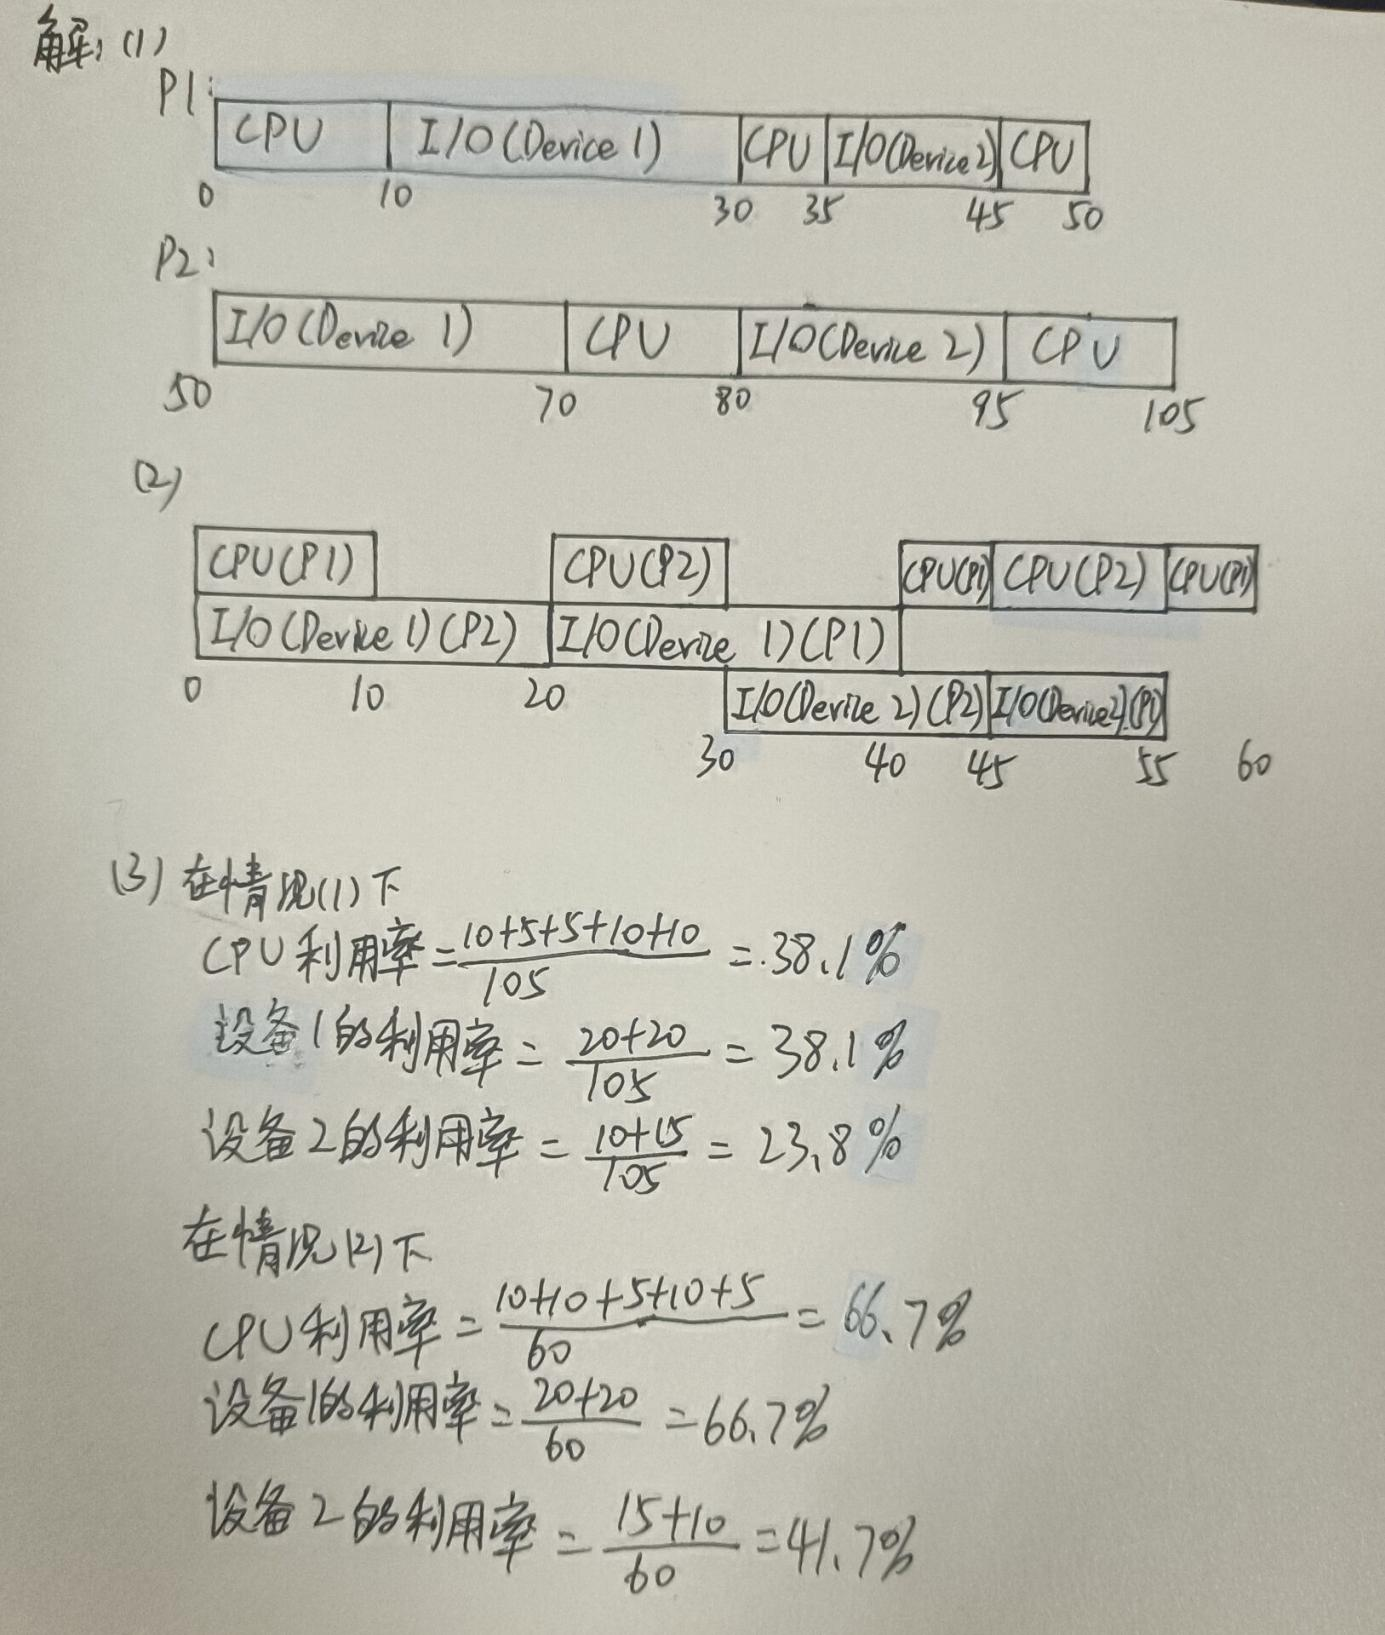 解:(1)
P1:
CPU I/O(Device 1) CPU I/O(Device 2) CPU
0 10 30 35 45 50
P2:
I/O(Device 1) CPU I/O(Device 2) CPU
50 70 80 95 105
(2)
CPU(P1) CPU(P2) CPU(P1) CPU(P2) CPU(P1)
I/O(Device 1)(P2) I/O(Device 1)(P1)
0 10 20
I/O(Device 2)(P2) I/O(Device2)(P1)
30 40 45 55 60
(3) 在情况(1)下
CPU利用率=\frac{10+5+5+10+10}{105}=38.1%
设备1的利用率=\frac{20+20}{105}=38.1%
设备2的利用率=\frac{10+15}{105}=23.8%
在情况(2)下
CPU利用率=\frac{10+10+5+10+5}{60}=66.7%
设备1的利用率=\frac{20+20}{60}=66.7%
设备2的利用率=\frac{15+10}{60}=41.7%